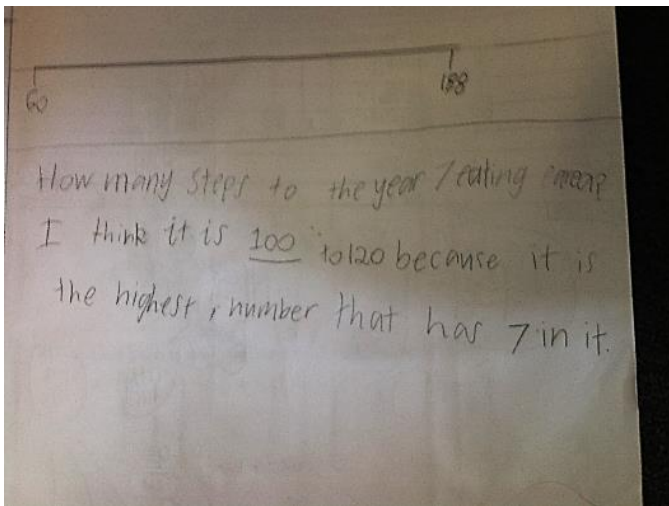 60 188
How many steps to the year 7 eating area?
I think it is 100 to 120 because it is
the highest, number that has 7 in it.